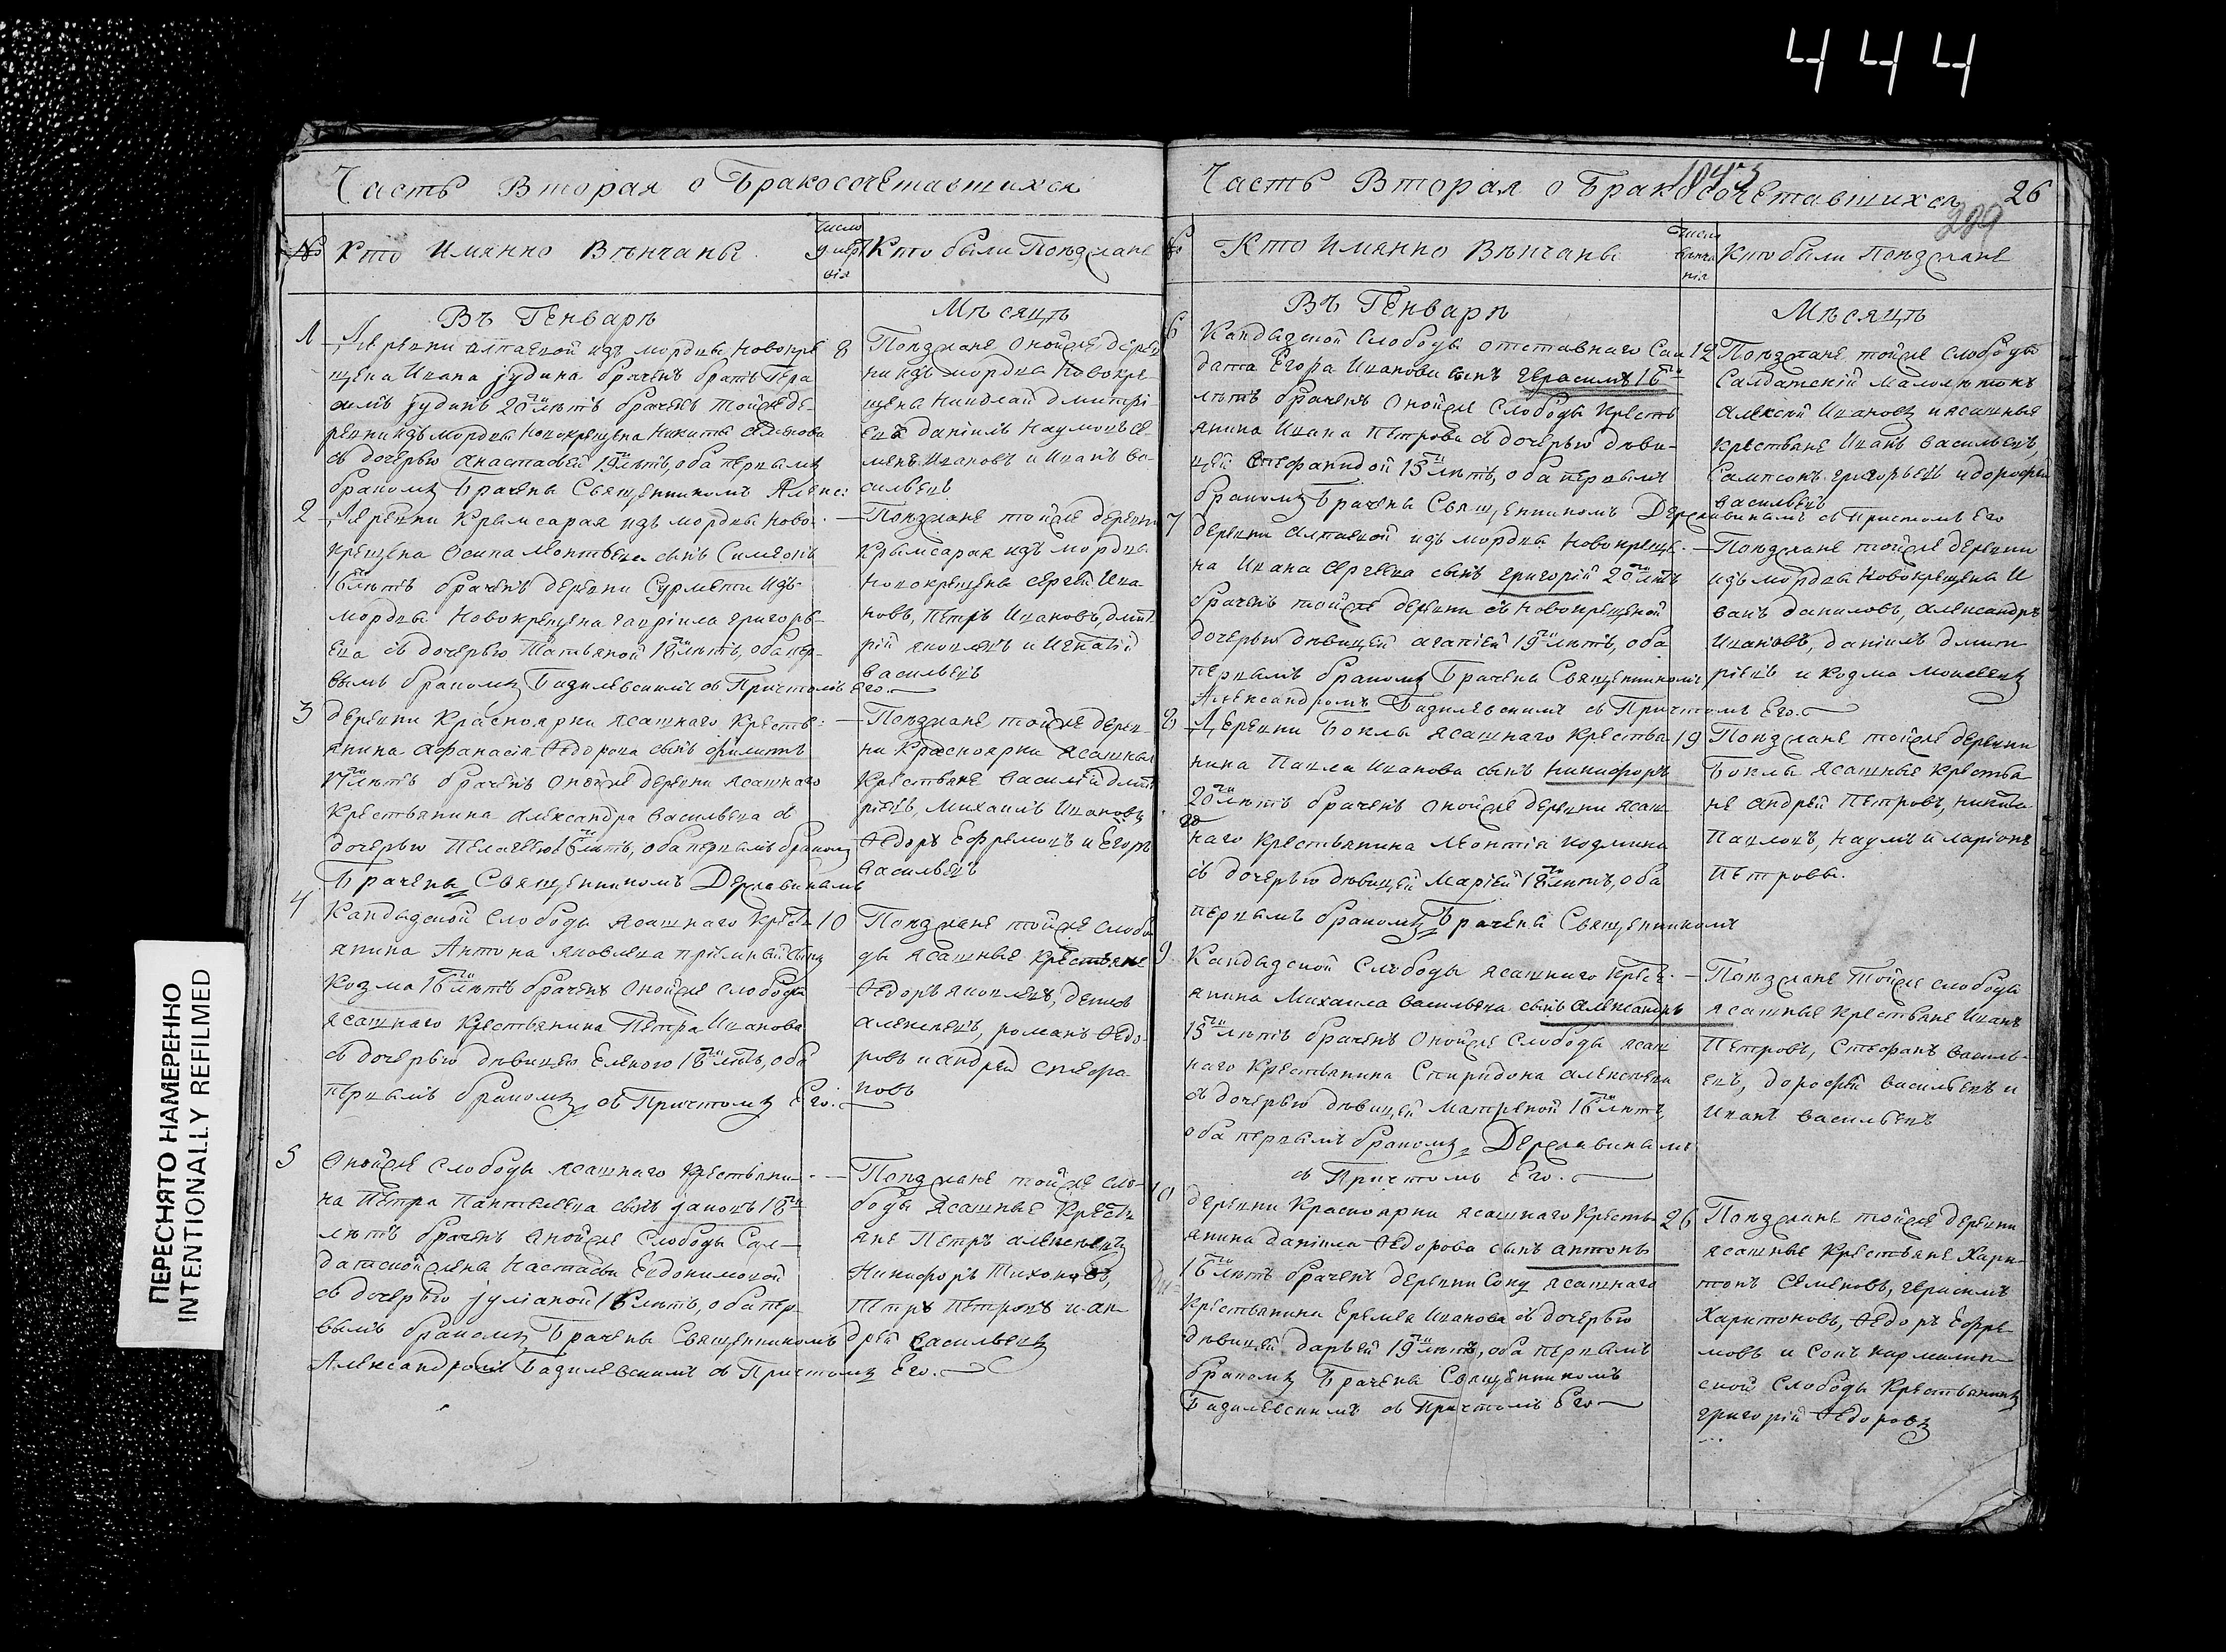 444
Часть Вторая о Бракосочетавшихся
№ Кто имянно Вѣнчаны
Кто были Поѣзжане
Въ Генварѣ
Мѣсяцѣ
1 Деревни алтаевой изъ мордвы новокре 8
щена Ивана Іудина браченъ братъ Гера
симъ Іудинъ 20ти лѣтъ браченъ тойже де-
ревни изъ мордвы новокрещена Никиты
съ дочерью анастасьей 19 лѣтъ, оба первымъ
бракомъ Брачены Священникомъ Алекс:
Поѣзжане онойже дерев
ни изъ мордвы новокре-
щены Николай дмитрі
евъ даніилъ Наумовъ се-
менъ Ивановъ и Иванъ ва-
сильевъ
2 Деревни Крымсарая изъ мордвы ново-
крещена Осипа Леонтьева сынъ Симеонъ
16ти лѣтъ браченъ деревни Сурмети изъ
мордвы новокрещена гавріила григорь-
ева съ дочерью Татьяной 18ти лѣтъ, оба пер-
вымъ бракомъ Базилевскимъ съ Причтомъ Его.
Поѣзжане тойже деревни
Крымсарая изъ мордвы
новокрещены сергѣй Ива
новъ, Петръ Ивановъ, дмит
рій яковлевъ и Игнатій
васильевъ
3 деревни Красноярки ясашнаго кресть-
янина афанасія Ѳедорова сынъ филиппъ
17ти лѣтъ браченъ онойже деревни ясашнаго
Крестьянина александра васильева съ
дочерью Пелагеею 16ти лѣтъ, оба первымъ бракомъ
Брачены Священникомъ Державинымъ
Поѣзжане тойже дерев
ни Красноярки ясашныя
Крестьяне василій дмит
ріевъ, Михаилъ Ивановъ
Ѳедоръ Ефремовъ и Егоръ
васильевъ
4 Кандызской слободы ясашнаго крест 10
янина Антона яковлева пріемный сынъ
Козма 16ти лѣтъ браченъ онойже слободы
ясашнаго крестьянина Петра Иванова
съ дочерью дѣвицею Еленою 18ти лѣтъ, оба
первымъ бракомъ съ Причтомъ Его.
Поѣзжане тойже слобо
ды ясашные крестьяне
Ѳедоръ яковлевъ, денис
алексеевъ, романъ Ѳедо-
ровъ и андрей стефа
новъ
5 Онойже слободы ясашнаго крестьяни-
на Петра Пантелеева сынъ 18ти
лѣтъ браченъ онойже слободы Сал-
датской жены Настасьи Евдокимовой
съ дочерью Іуліаной 16 лѣтъ, оба пер-
вымъ бракомъ Брачены Священникомъ
Александромъ Базилевскимъ съ Причтомъ Его.
Поѣзжане тойже сло-
боды ясашные крестья
яне Петръ алексеевъ
Никифоръ Тихоновъ,
Петръ Петровъ и ан
дрей васильевъ
Часть Вторая о Бракосочетавшихся 26
1043
№ Кто имянно Вѣнчаны
Кто были поѣзжане
Въ Генварѣ
Мѣсяцѣ
6 Кандызской слободы отставнаго Сал 12
дата Егора Иванова сынъ герасимъ 16ти
лѣтъ браченъ онойже слободы кресть
янина Ивана Петрова съ дочерью дѣви-
цей Стефанидой 15ти лѣтъ, оба первымъ
бракомъ Брачены Священникомъ Державинымъ съ Причтомъ Его
Поѣзжане тойже слободы
Салдатскій малолѣтокъ
алексей Ивановъ и ясашные
крестьяне Иванъ васильевъ,
Сампсонъ григорьевъ и дорофей
васильевъ
7 деревни алтаевой изъ мордвы новокреще-
на Ивана сергѣева сынъ григорій 20ти лѣтъ
браченъ тойже деревни съ новокрещеной
дочерью дѣвицей агапіей 19ти лѣтъ, оба
первымъ бракомъ Брачены Священникомъ
Александромъ Базилевскимъ съ Причтомъ Его.
Поѣзжане тойже деревни
изъ мордвы новокрещены И
ванъ даниловъ, александръ
Ивановъ, даніилъ дмит
ріевъ и козма моисеевъ
8 Деревни Боклы ясашнаго крестья 19
нина Павла Иванова сынъ никифоръ
20ти лѣтъ браченъ онойже деревни ясаш
наго крестьянина леонтія козмина
съ дочерью дѣвицей Маріей 18ти лѣтъ, оба
первымъ бракомъ Брачены Священникомъ
Поѣзжане тойже деревни
Боклы ясашные крестья
не андрей Петровъ, никита
Павловъ, наумъ и ларіонъ
Петровы.
9 Кандызской слободы ясашнаго крес-
янина Михаила васильева сынъ александръ
15ти лѣтъ браченъ онойже слободы ясаш
наго крестьянина Спиридона алексеева
съ дочерью дѣвицей матреной 16ти лѣтъ,
оба первымъ бракомъ Державинымъ
съ Причтомъ Его.
Поѣзжане тойже слободы
ясашные крестьяне Иванъ
Петровъ, Стефанъ василь-
евъ, дорофей васильевъ и
Иванъ васильевъ
10 деревни Красноярки ясашнаго кресть 26
янина даніила Ѳедорова сынъ антонъ
16ти лѣтъ браченъ деревни Соку ясашнаго
Крестьянина Еремея Иванова съ дочерью
дѣвицей дарьей 19ти лѣтъ, оба первымъ
бракомъ Брачены Священникомъ
Базилевскимъ съ Причтомъ Его
Поѣзжане тойже деревни
ясашные крестьяне Хари-
тонъ семеновъ, герасимъ
Харитоновъ, Ѳедоръ Ефре-
мовъ и Сок кармалин
ской слободы крестьянинъ
григорій Ѳедоровъ
ПЕРЕСНЯТО НАМЕРЕННО
INTENTIONALLY REFILMED